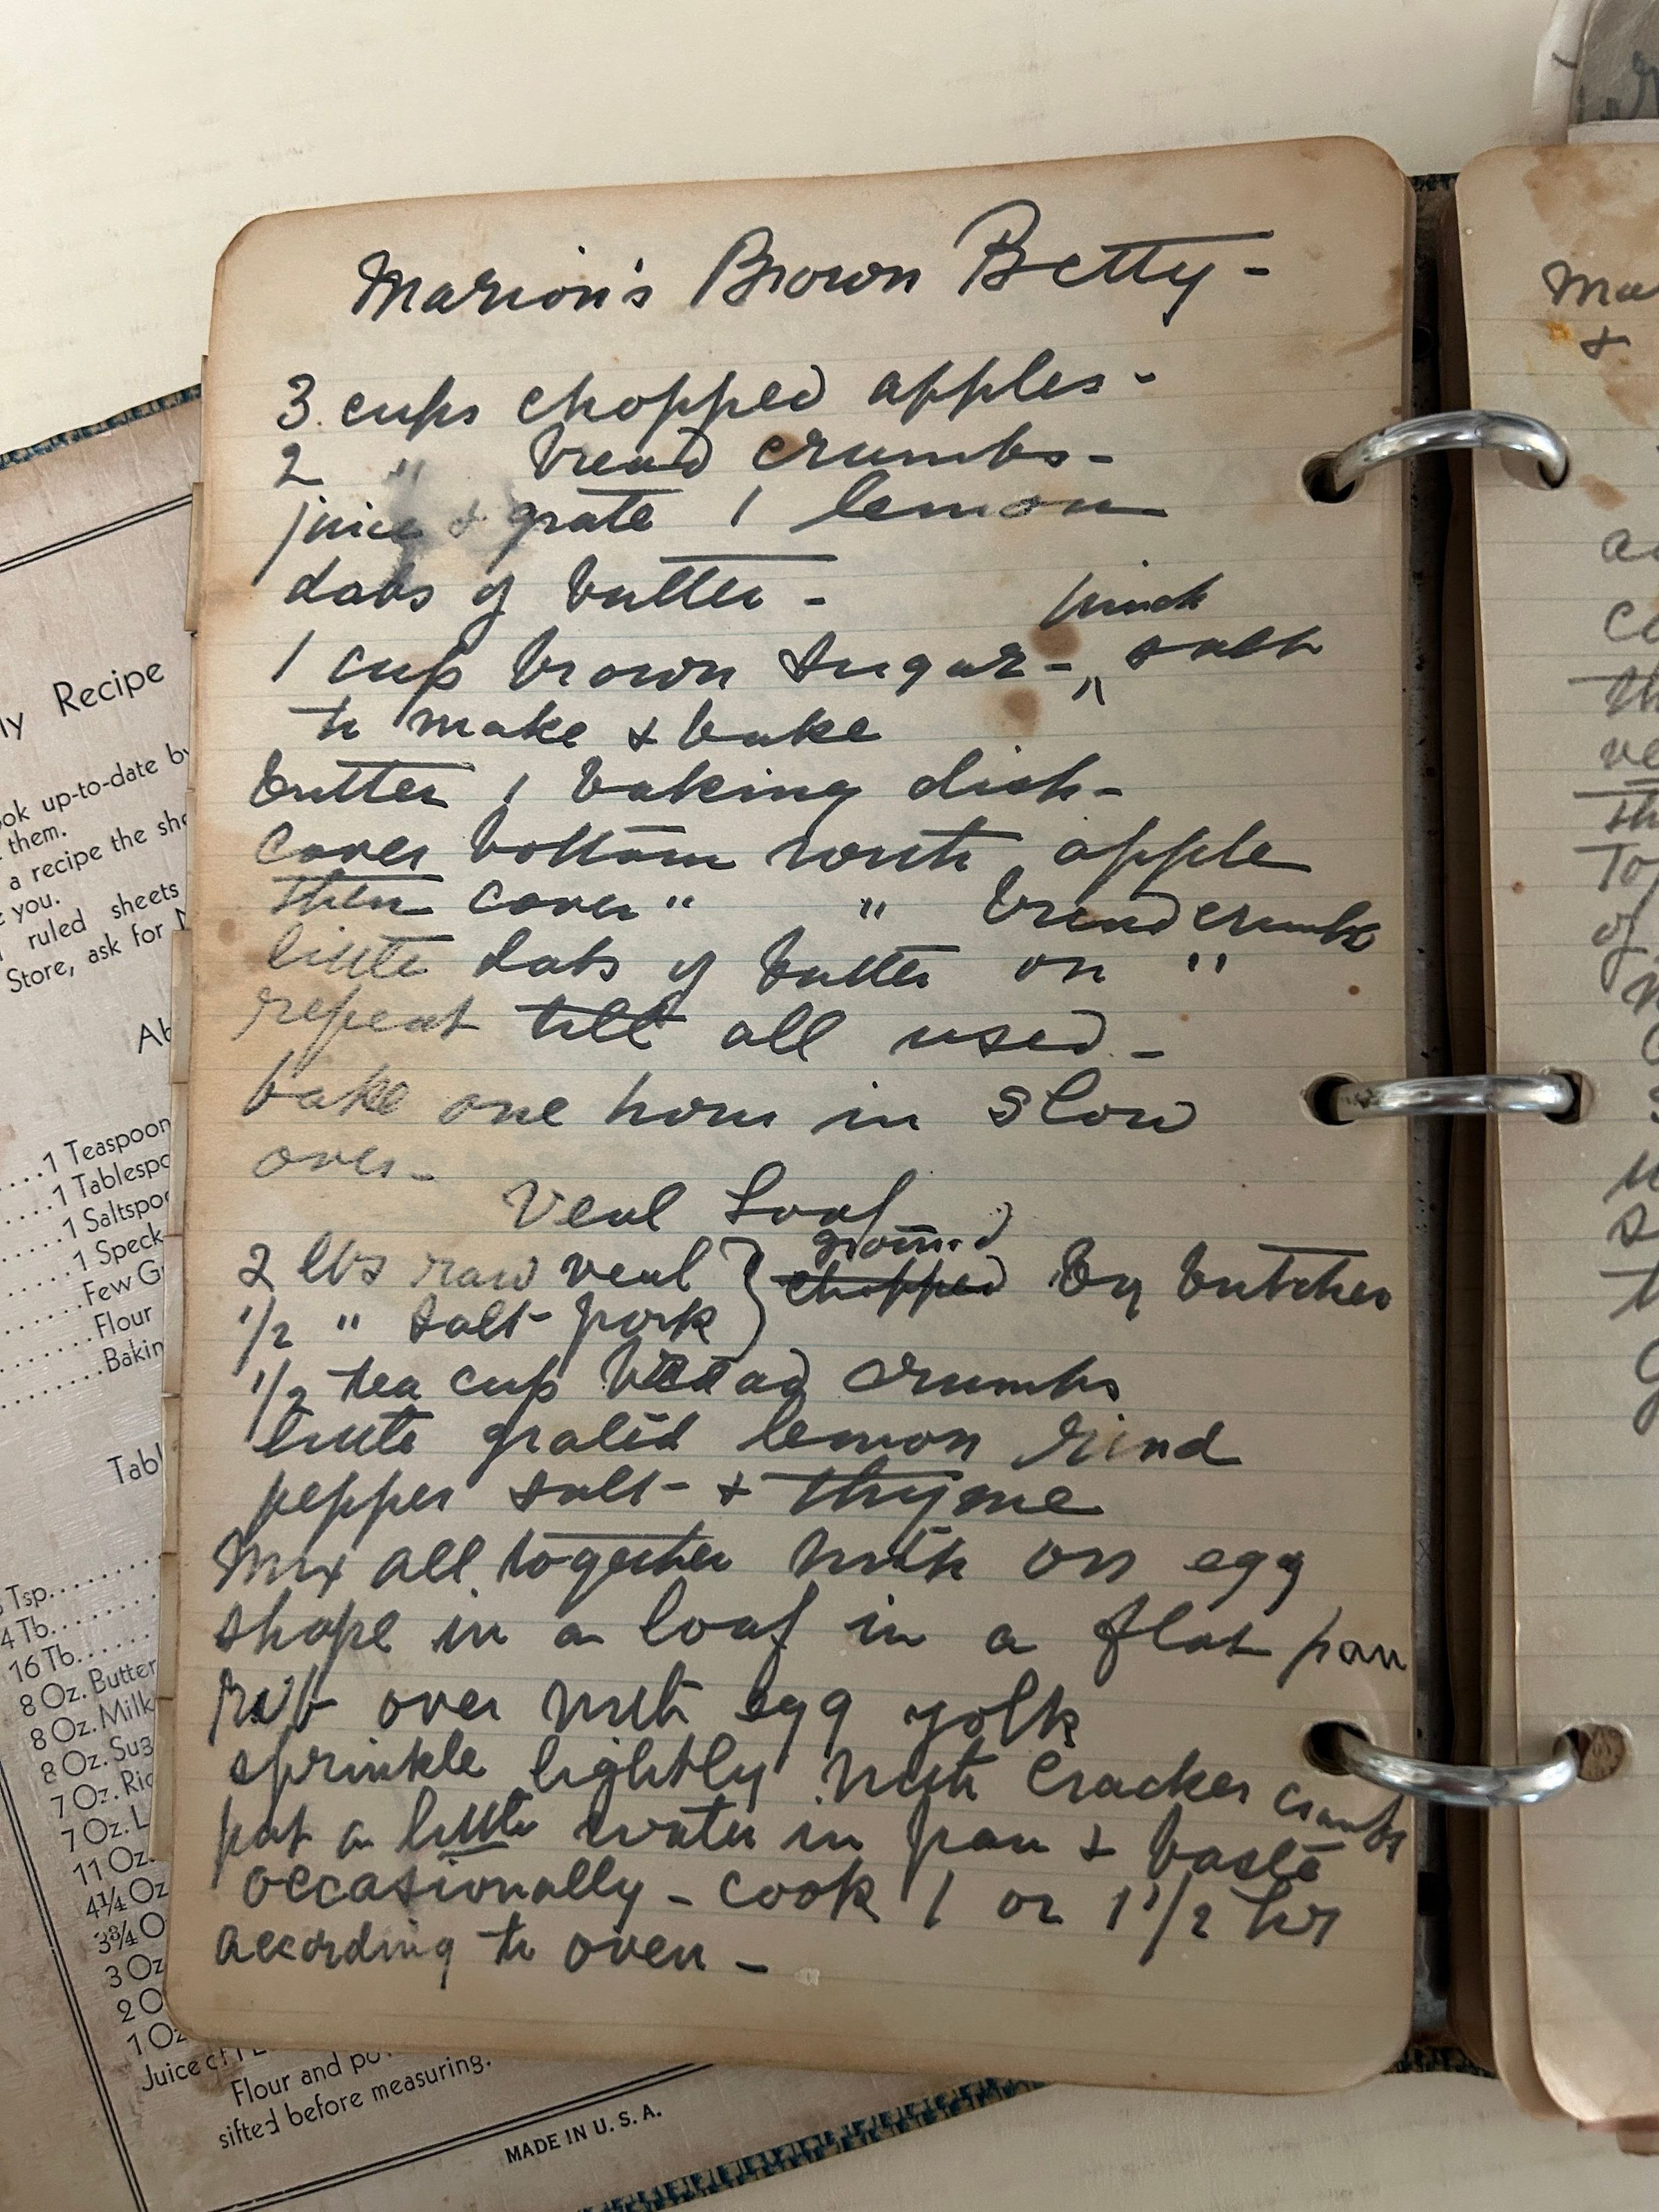 Marion's Brown Betty -
3 cups chopped apples -
2 " bread crumbs -
juice & grate 1 lemon
dabs of butter -
pinch
1 cup brown sugar - " salt
to make & bake
butter 1 baking dish -
cover bottom with apple
then cover " " bread crumbs
little dabs of butter on "
repeat till all used -
bake one hour in slow
oven -
Veal Loaf
ground
2 lbs raw veal } chopped by butcher
1/2 " salt pork
1/2 tea cup bread crumbs
little grated lemon rind
pepper salt - & thyme
Mix all together with on egg
shape in a loaf in a flat pan
rub over with egg yolk
sprinkle lightly with cracker crumbs
put a little water in pan & baste
occasionally - cook 1 or 1 1/2 hr
according to oven -
Recipe
ook up-to-date by
them.
a recipe the she
you.
ruled sheets
Store, ask for
1 Teaspoon
1 Tablespo
1 Saltspo
1 Speck
Few G
Flour
Bakin
Tabl
Tsp.
4 Tb.
16 Tb.
8 Oz. Butter
8 Oz. Milk
8 Oz. Sug
7 Oz. Ric
7 Oz. L
11 Oz.
4 1/4 Oz
3 3/4 O
3 Oz
2 O
1 Oz
Juice of 1 L
Flour and po
sifted before measuring.
MADE IN U. S. A.
Ma
&